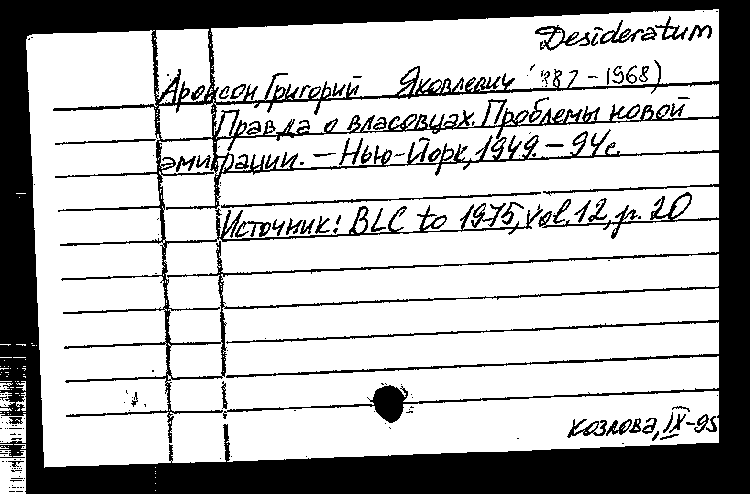 Desideratum
Аронсон, Григорий Яковлевич (1887-1968)
Правда о власовцах. Проблемы новой
эмиграции. - Нью-Йорк, 1949. - 94 с.
Источник: BLC to 1975, vol. 12, p. 20
Козлова, IX-95